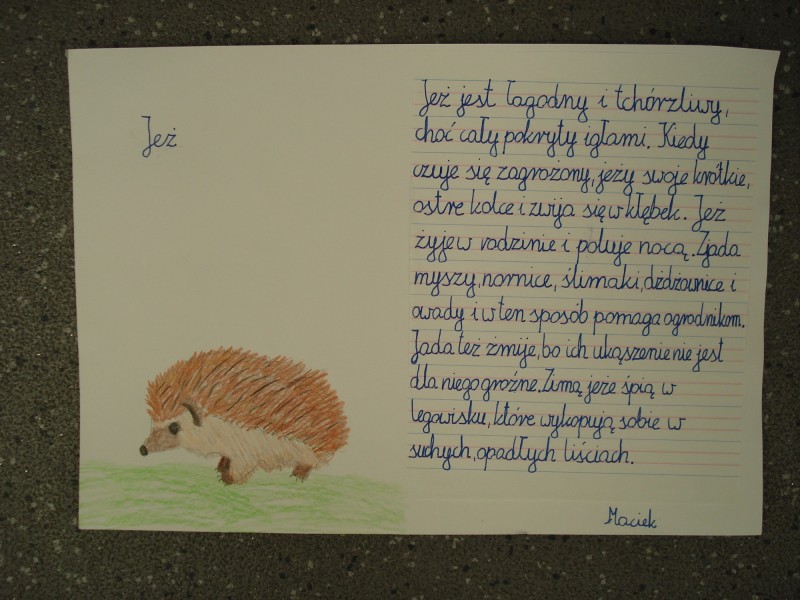 Jeż
Jeż jest łagodny i tchórzliwy,
choć cały pokryty igłami. Kiedy
czuje się zagrożony, jeży swoje krótkie,
ostre kolce i zwija się w kłębek. Jeż
żyje w rodzinie i poluje nocą. Zjada
myszy, nornice, ślimaki, dżdżownice i
owady i w ten sposób pomaga ogrodnikom.
Jada też żmije, bo ich ukąszenie nie jest
dla niego groźne. Zimą jeże śpią w
legowisku, które wykopują sobie w
suchych, opadłych liściach.
Maciek